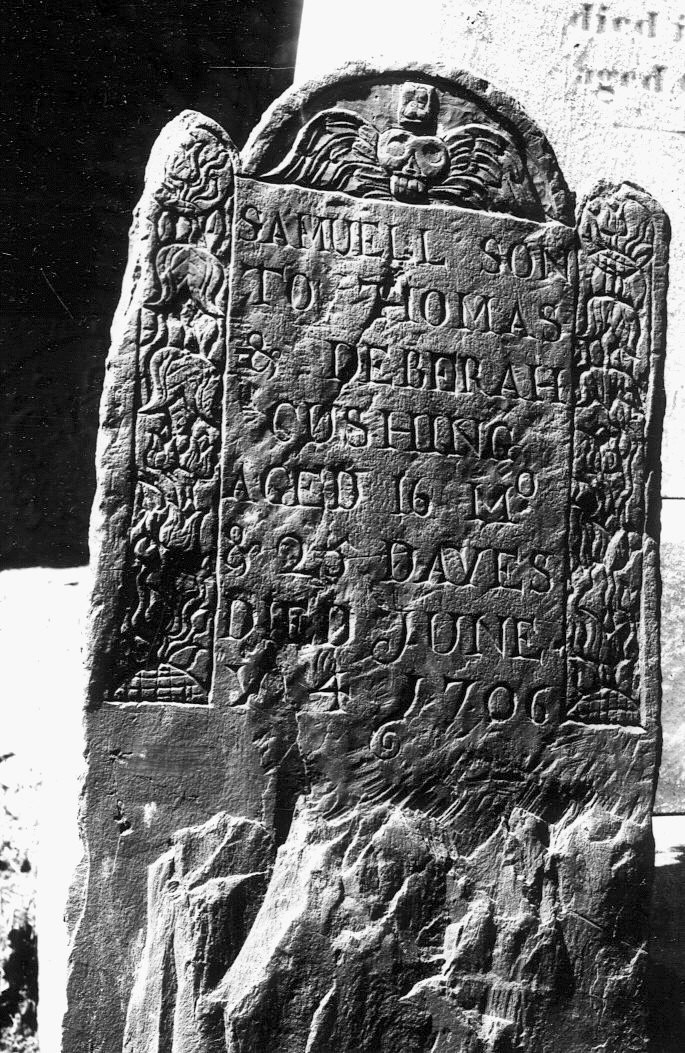 died
aged
SAMUELL SON
TO THOMAS
& DEBERAH
CUSHING
AGED 16 Mo
& 25 DAYES
DIED JUNE
Ye 4 1706